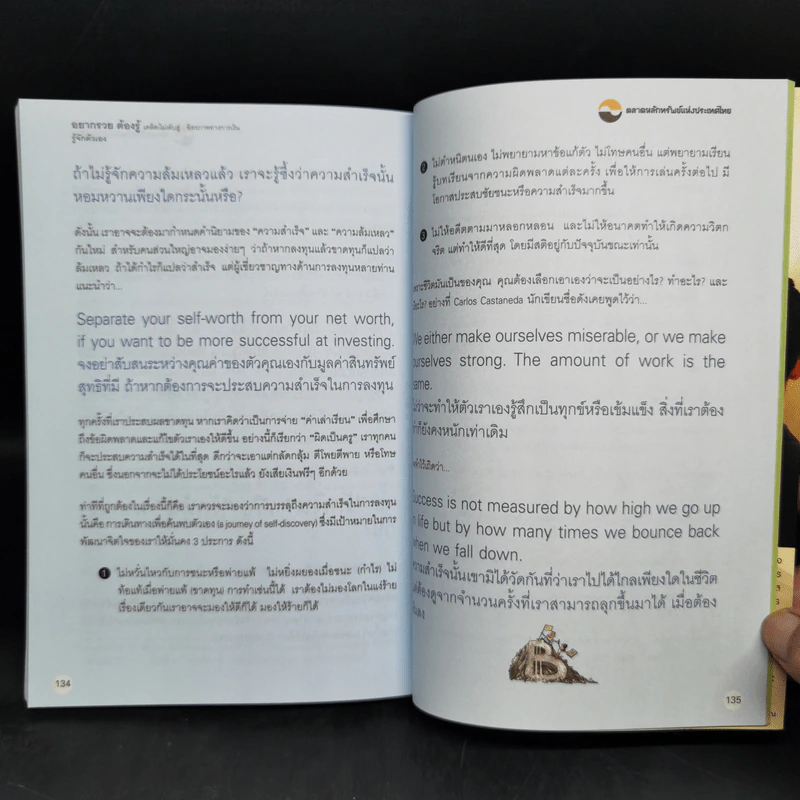 อยากรวย ต้องรู้ เคล็ดไม่ลับสู่...อิสรภาพทางการเงิน
รู้จักตัวเอง
ถ้าไม่รู้จักความล้มเหลวแล้ว เราจะรู้ซึ้งว่าความสำเร็จนั้น
หอมหวานเพียงใดกระนั้นหรือ?
ดังนั้น เราอาจจะต้องมากำหนดคำนิยามของ “ความสำเร็จ” และ “ความล้มเหลว”
กันใหม่ สำหรับคนส่วนใหญ่อาจมองง่ายๆ ว่าถ้าหากลงทุนแล้วขาดทุนก็แปลว่า
ล้มเหลว ถ้าได้กำไรก็แปลว่าสำเร็จ แต่ผู้เชี่ยวชาญทางด้านการลงทุนหลายท่าน
แนะนำว่า...
Separate your self-worth from your net worth,
if you want to be more successful at investing.
จงอย่าสับสนระหว่างคุณค่าของตัวคุณเองกับมูลค่าสินทรัพย์
สุทธิที่มี ถ้าหากต้องการจะประสบความสำเร็จในการลงทุน
ทุกครั้งที่เราประสบผลขาดทุน หากเราคิดว่าเป็นการจ่าย “ค่าเล่าเรียน” เพื่อศึกษา
ถึงข้อผิดพลาดและแก้ไขตัวเราเองให้ดีขึ้น อย่างนี้ก็เรียกว่า “ผิดเป็นครู” เราทุกคน
ก็จะประสบความสำเร็จได้ในที่สุด ดีกว่าจะเอาแต่กลัดกลุ้ม ตีโพยตีพาย หรือโทษ
คนอื่น ซึ่งนอกจากจะไม่ได้ประโยชน์อะไรแล้ว ยังเสียเงินฟรีๆ อีกด้วย
ท่าทีที่ถูกต้องในเรื่องนี้ก็คือ เราควรจะมองว่าการบรรลุถึงความสำเร็จในการลงทุน
นั้นคือ การเดินทางเพื่อค้นพบตัวเอง (a journey of self-discovery) ซึ่งมีเป้าหมายในการ
พัฒนาจิตใจของเราให้มั่นคง 3 ประการ ดังนี้
1 ไม่หวั่นไหวกับการชนะหรือพ่ายแพ้ ไม่หยิ่งผยองเมื่อชนะ (กำไร) ไม่
ท้อแท้เมื่อพ่ายแพ้ (ขาดทุน) การทำเช่นนี้ได้ เราต้องไม่มองโลกในแง่ร้าย
เรื่องเดียวกันเราอาจจะมองให้ดีก็ได้ มองให้ร้ายก็ได้
134
ตลาดหลักทรัพย์แห่งประเทศไทย
2 ไม่ตำหนิตนเอง ไม่พยายามหาข้อแก้ตัว ไม่โทษคนอื่น แต่พยายามเรียน
รู้บทเรียนจากความผิดพลาดแต่ละครั้ง เพื่อให้การเล่นครั้งต่อไป มี
โอกาสประสบชัยชนะหรือความสำเร็จมากขึ้น
3 ไม่ให้อดีตตามมาหลอกหลอน และไม่ให้อนาคตทำให้เกิดความวิตก
จริต แต่ทำให้ดีที่สุด โดยมีสติอยู่กับปัจจุบันขณะเท่านั้น
เพราะชีวิตมันเป็นของคุณ คุณต้องเลือกเอาเองว่าจะเป็นอย่างไร? ทำอะไร? และ
อย่างที่ Carlos Castaneda นักเขียนชื่อดังเคยพูดไว้ว่า...
We either make ourselves miserable, or we make
ourselves strong. The amount of work is the
same.
ไม่ว่าจะทำให้ตัวเราเองรู้สึกเป็นทุกข์หรือเข้มแข็ง สิ่งที่เราต้อง
ทำก็ยังคงหนักเท่าเดิม
Success is not measured by how high we go up
in life but by how many times we bounce back
when we fall down.
ความสำเร็จนั้นเขามิได้วัดกันที่ว่าเราไปได้ไกลเพียงใดในชีวิต
แต่ต้องดูจากจำนวนครั้งที่เราสามารถลุกขึ้นมาได้ เมื่อต้อง
B
135